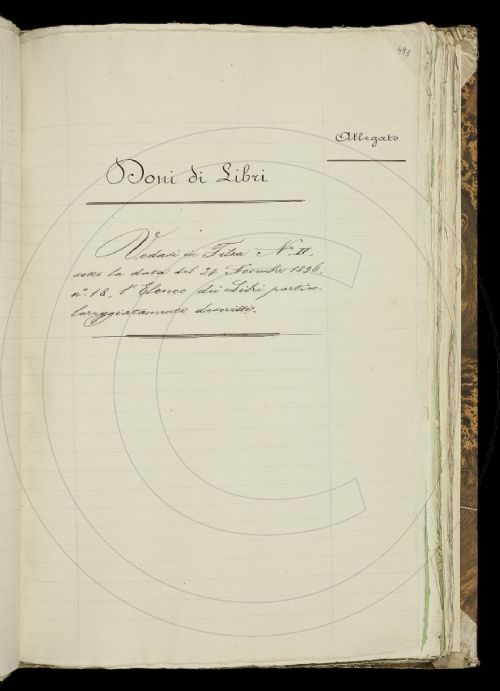 498
Allegato
Doni di Libri
Vedasi in Filza N. II.
sotto la data del 28 Novembre 1896,
n.° 18, l'Elenco dei Libri partico-
lareggiatamente descritti.